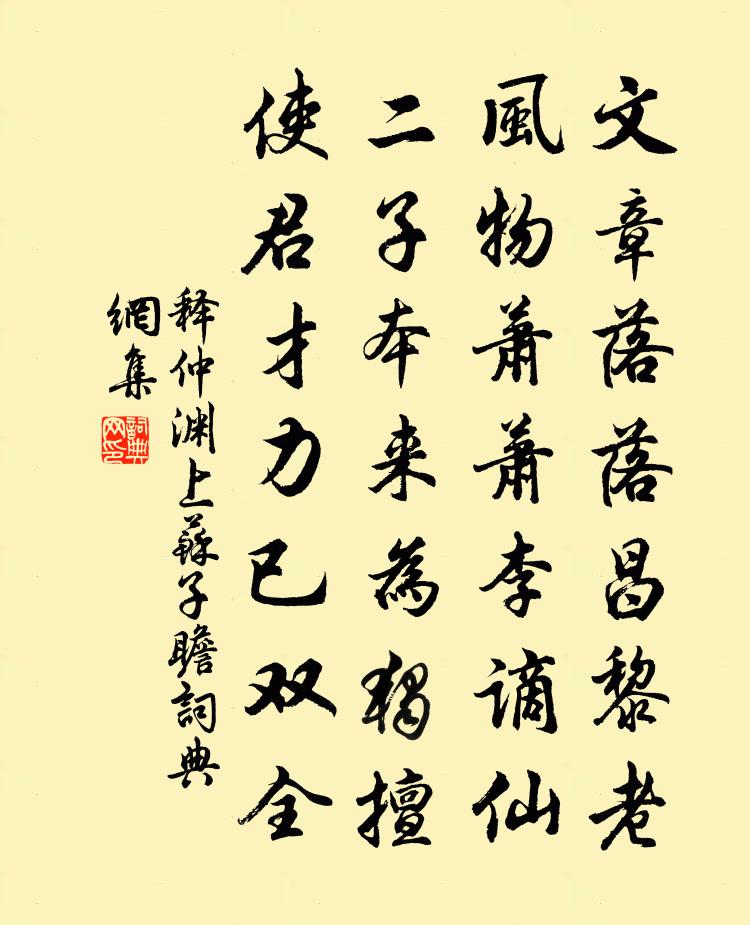 文章落落昌黎老
風物蕭蕭李謫仙
二子本来為獨擅
使君才力已双全
释仲渊上蘇子瞻詞典
網集
詞典
网印